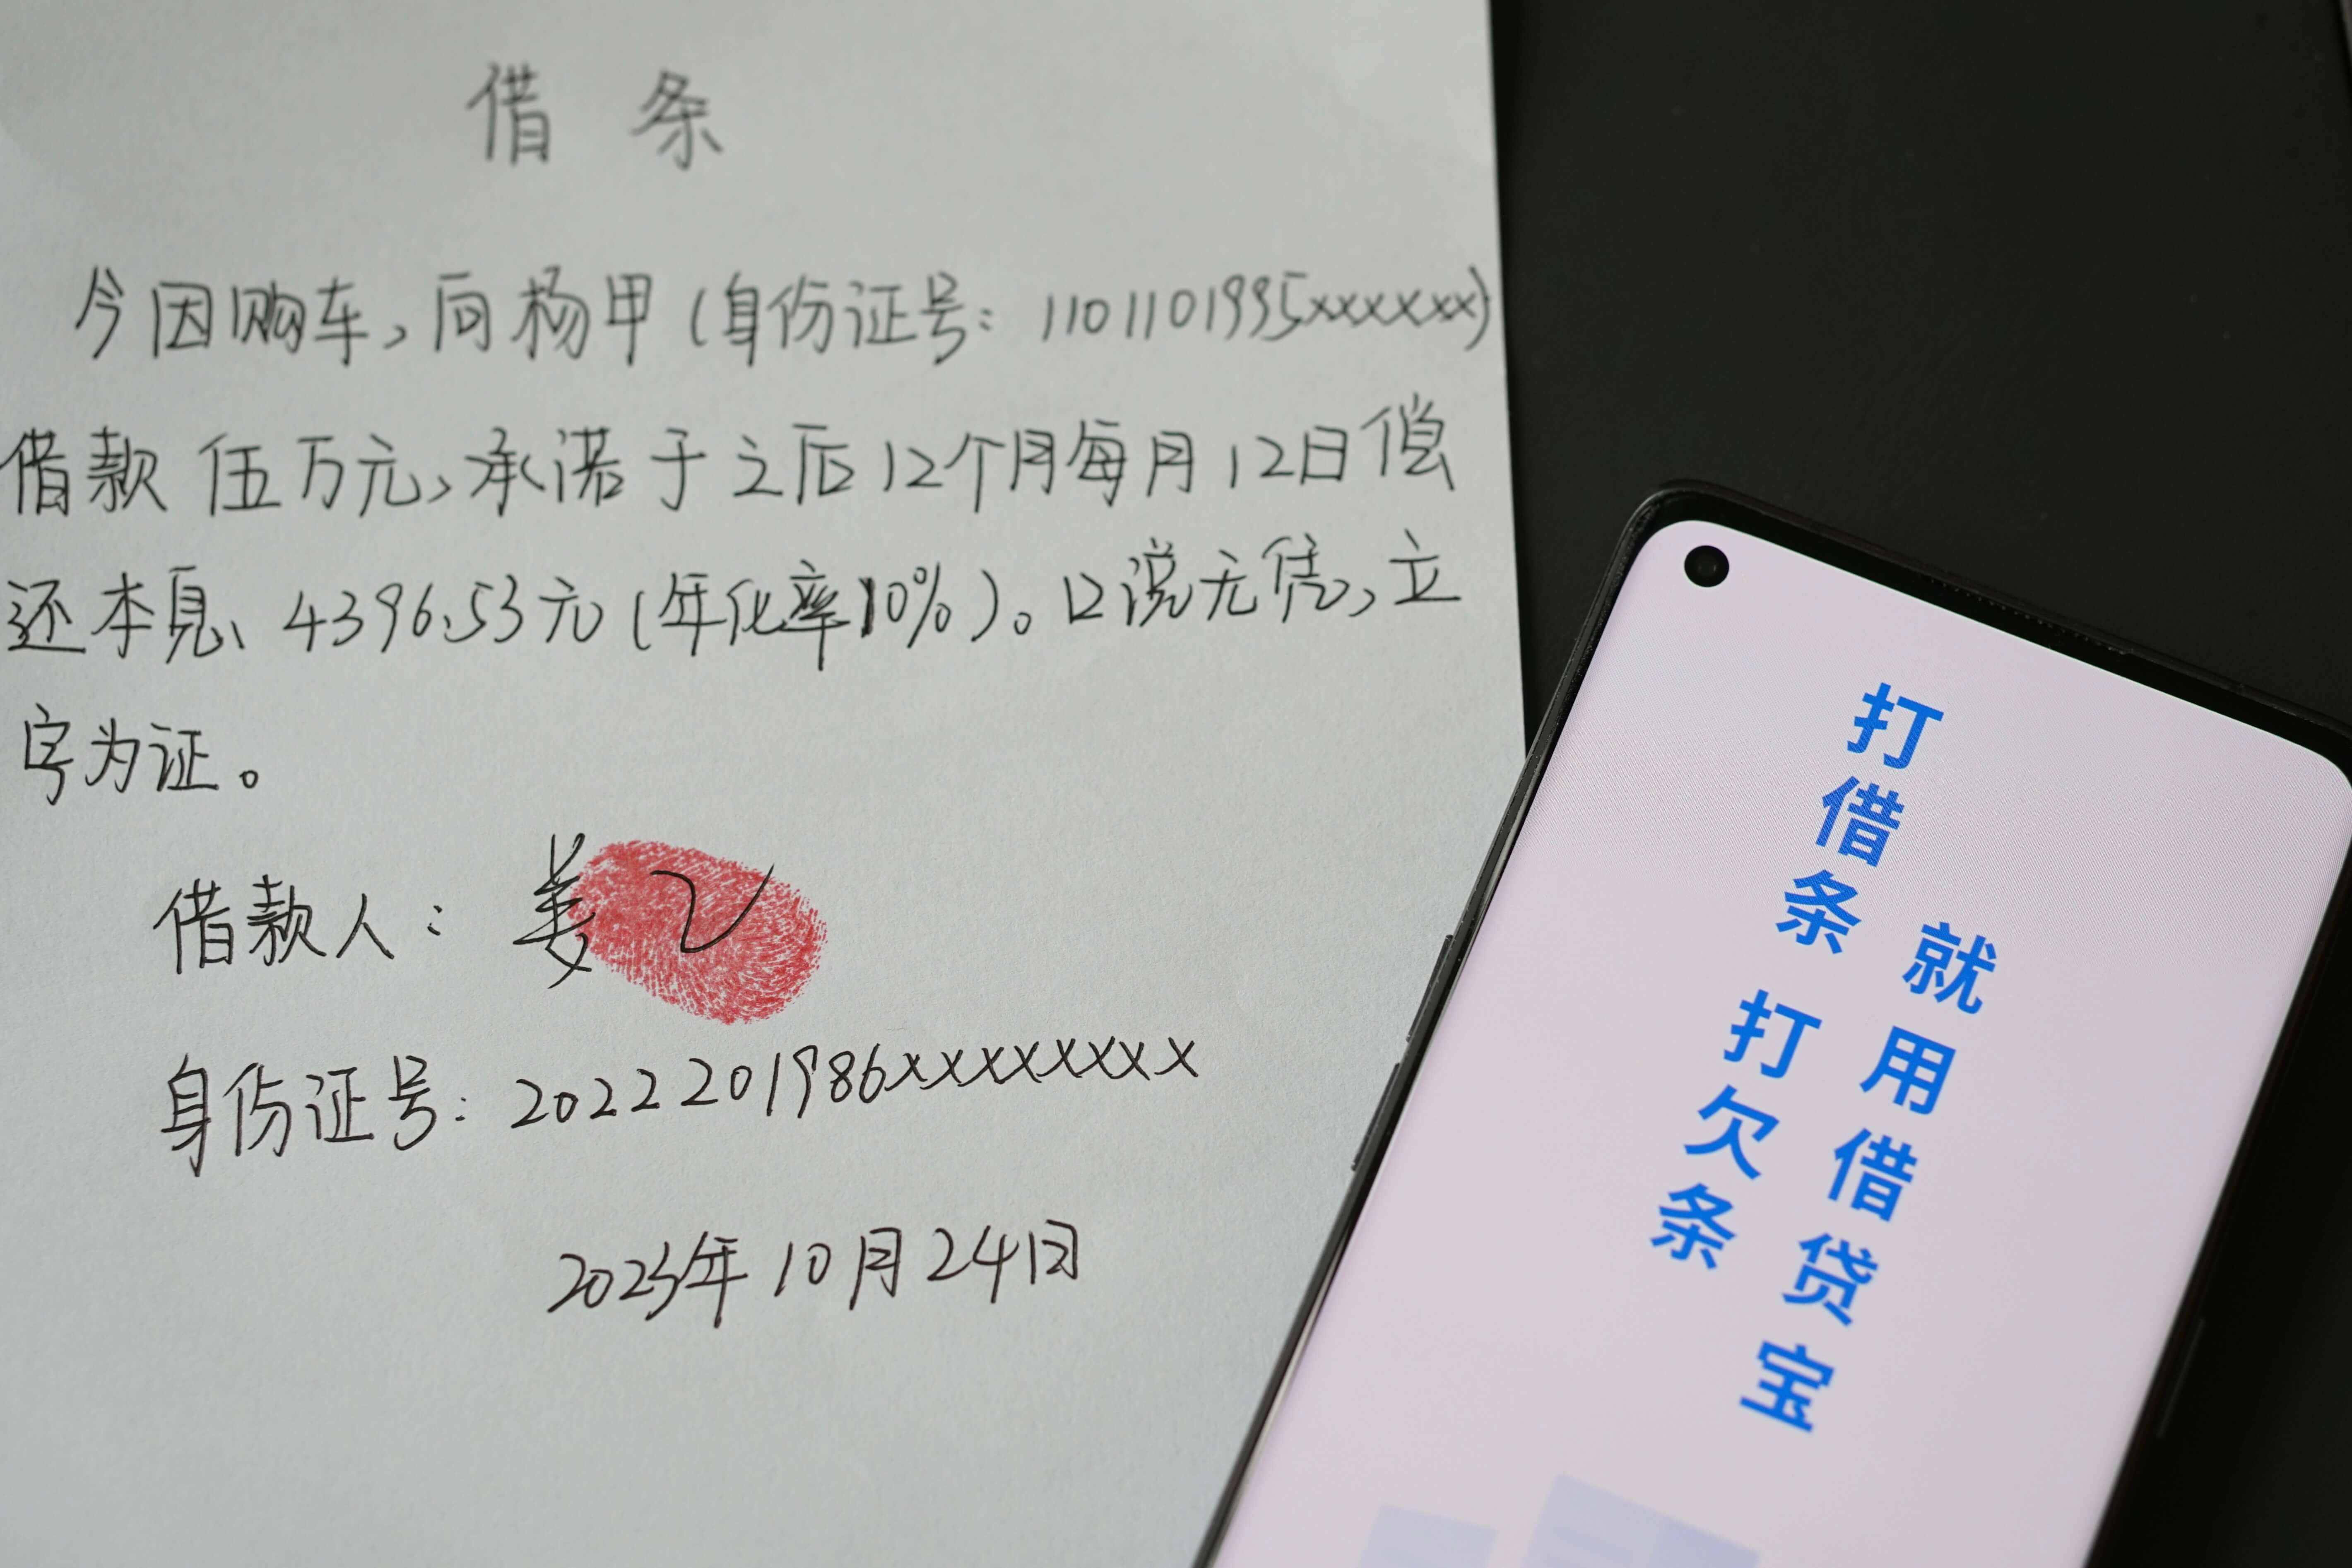 借 条
今因购车,向杨甲(身份证号: 1101101995xxxxxx)
借款 伍万元,承诺于之后12个月每月12日偿
还本息、4396.53元(年化率10%)。口说无凭,立
字为证。
借款人: 姜乙
身份证号: 2022201986xxxxxxxx
2023年10月24日
打借条 打欠条
就用借贷宝